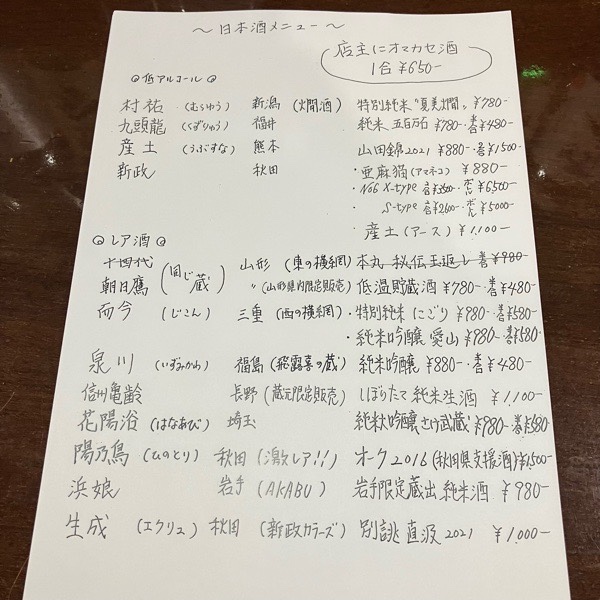 ～日本酒メニュー～
店主にオマカセ酒
1合 ¥650-
◎低アルコール◎
村祐 (むらゆう) 新潟 (燗酒) 特別純米"夏美燗" ¥780-
九頭龍 (くずりゅう) 福井 純米 五百万石 ¥780-・半 ¥480-
産土 (うぶすな) 熊本 山田錦2021 ¥880-
新政 秋田 ・亜麻猫(アマネコ) ¥880-
・No6 X-type ¥6,500-
S-type ¥2,600-・ボトル ¥5000-
産土(アース) ¥1,100-
◎レア酒◎
十四代 (同じ蔵) 山形 (東の横綱) 本丸 秘伝玉返し ¥980-
朝日鷹 〃 (山形県内限定販売) 低温貯蔵酒 ¥780-・半 ¥480-
而今 (じこん) 三重 (西の横綱) ・特別純米 にごり ¥980-・半 ¥580-
・純米吟醸 愛山 ¥980-・半 ¥580-
泉川 (いずみかわ) 福島 (飛露喜の蔵) 純米吟醸 ¥880-・半 ¥480-
信州亀齢 長野 (蔵元限定販売) しぼりたて 純米生酒 ¥1,100-
花陽浴 (はなあび) 埼玉 純米大吟醸 さけ武蔵 ¥980-・半 ¥580-
陽乃鳥 (ひのとり) 秋田 (激レア!!) オーク2016 (秋田県支援酒) ¥1,500-
浜娘 岩手 (AKABU) 岩手限定蔵出 純米酒 ¥980-
生成 (エクリュ) 秋田 (新政カラーズ) 別誂 直汲 2021 ¥1,000-